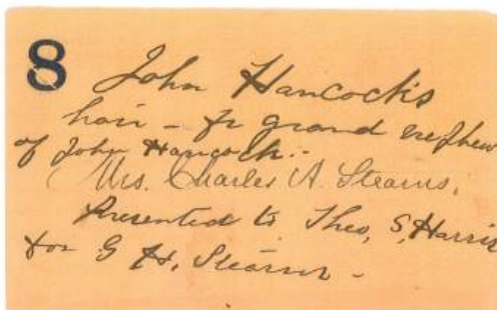 8
John Hancock's
hair - fr grand nephew
of John Hancock.-
Mrs. Charles A. Stearns,
Presented to Theo, S, Harris
for G H, Stearns -